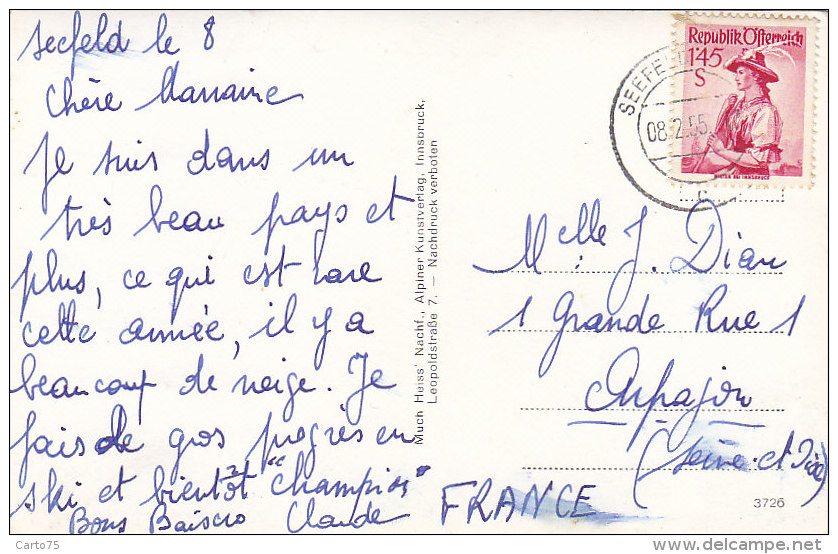 Seefeld le 8
Chère Marraine
Je suis dans un
très beau pays et
plus, ce qui est rare
cette année, il y a
beaucoup de neige. Je
fais de gros progrès en
ski et bientôt "champion"
Bons Baisers Claude
Much Heiss' Nachf., Alpiner Kunstverlag, Innsbruck,
Leopoldstraße 7. — Nachdruck verboten
Republik Österreich
145
S
SEEFELD
08.2.55
Melle J. Dian
1 Grande Rue 1
Arpajon
(Seine-et-Oise)
FRANCE
3726
Carto75
delcampe.net